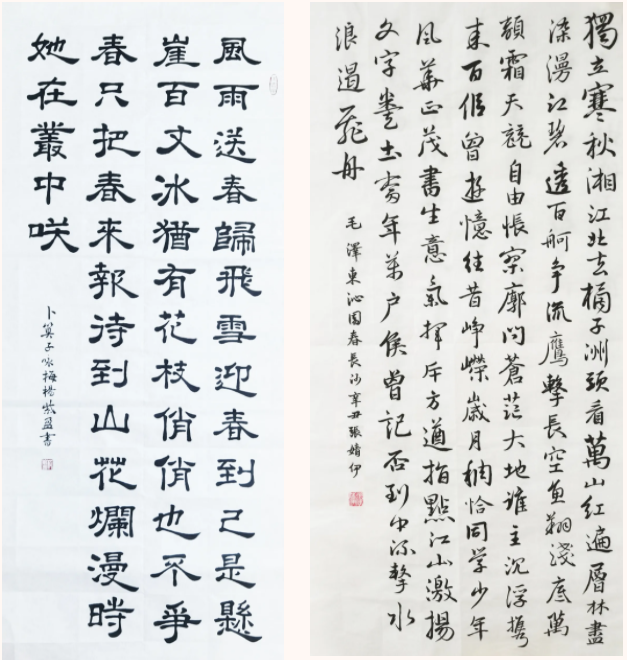 風雨送春歸飛雪迎春到已是懸
崖百丈冰猶有花枝俏俏也不爭
春只把春來報待到山花爛漫時
她在叢中咲
卜算子咏梅楊紫盈書
獨立寒秋湘江北去橘子洲頭看萬山紅遍層林盡
染漫江碧透百舸爭流鷹擊長空魚翔淺底萬
類霜天競自由悵寥廓問蒼茫大地誰主沉浮攜
來百侣曾遊憶往昔崢嶸歲月稠恰同学少年
風華正茂書生意氣揮斥方遒指點江山激揚
文字糞土當年萬户侯曾記否到中流擊水
浪遏飛舟
毛澤東沁園春長沙辛丑張婧伊